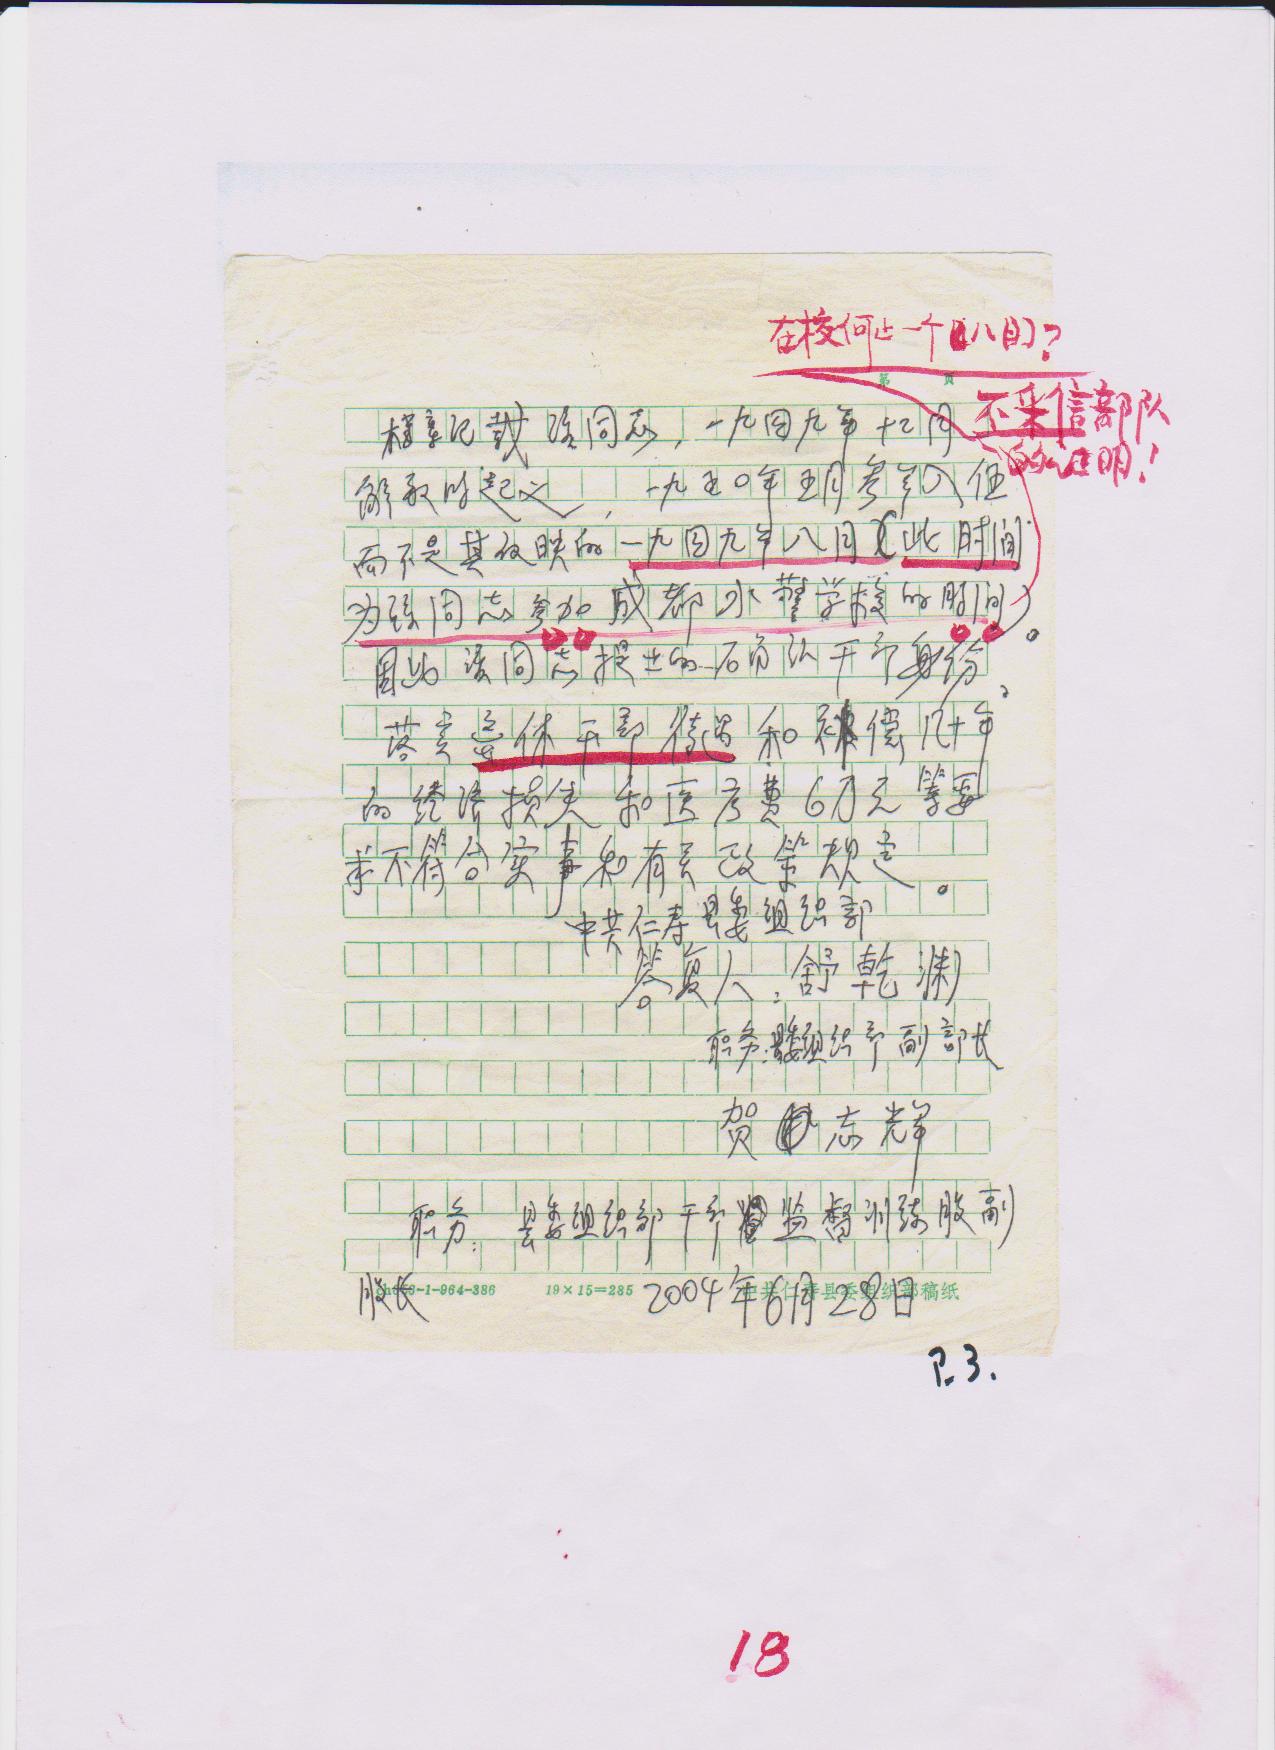 在校何止一个八月？
第 页
不采信部队
的证明！
档案记载该同志，一九四九年十二月
解放时起义，一九五〇年五月参军入伍
而不是其反映的一九四九年八月（此时间
为该同志参加成都水警学校的时间）。
因此该同志提出的 干部身份、
落实离休干部待遇和补偿几十年
的经济损失和医疗费6万元等要
求不符合实事和有关政策规定。
中共仁寿县委组织部
答复人：舒乾渊
职务：县委组织部副部长
贺志辉
职务：县委组织部干部监督训练股副
股长
-1-964-386 19×15=285 中共仁寿县委组织部稿纸
2004年6月28日
P.3.
18